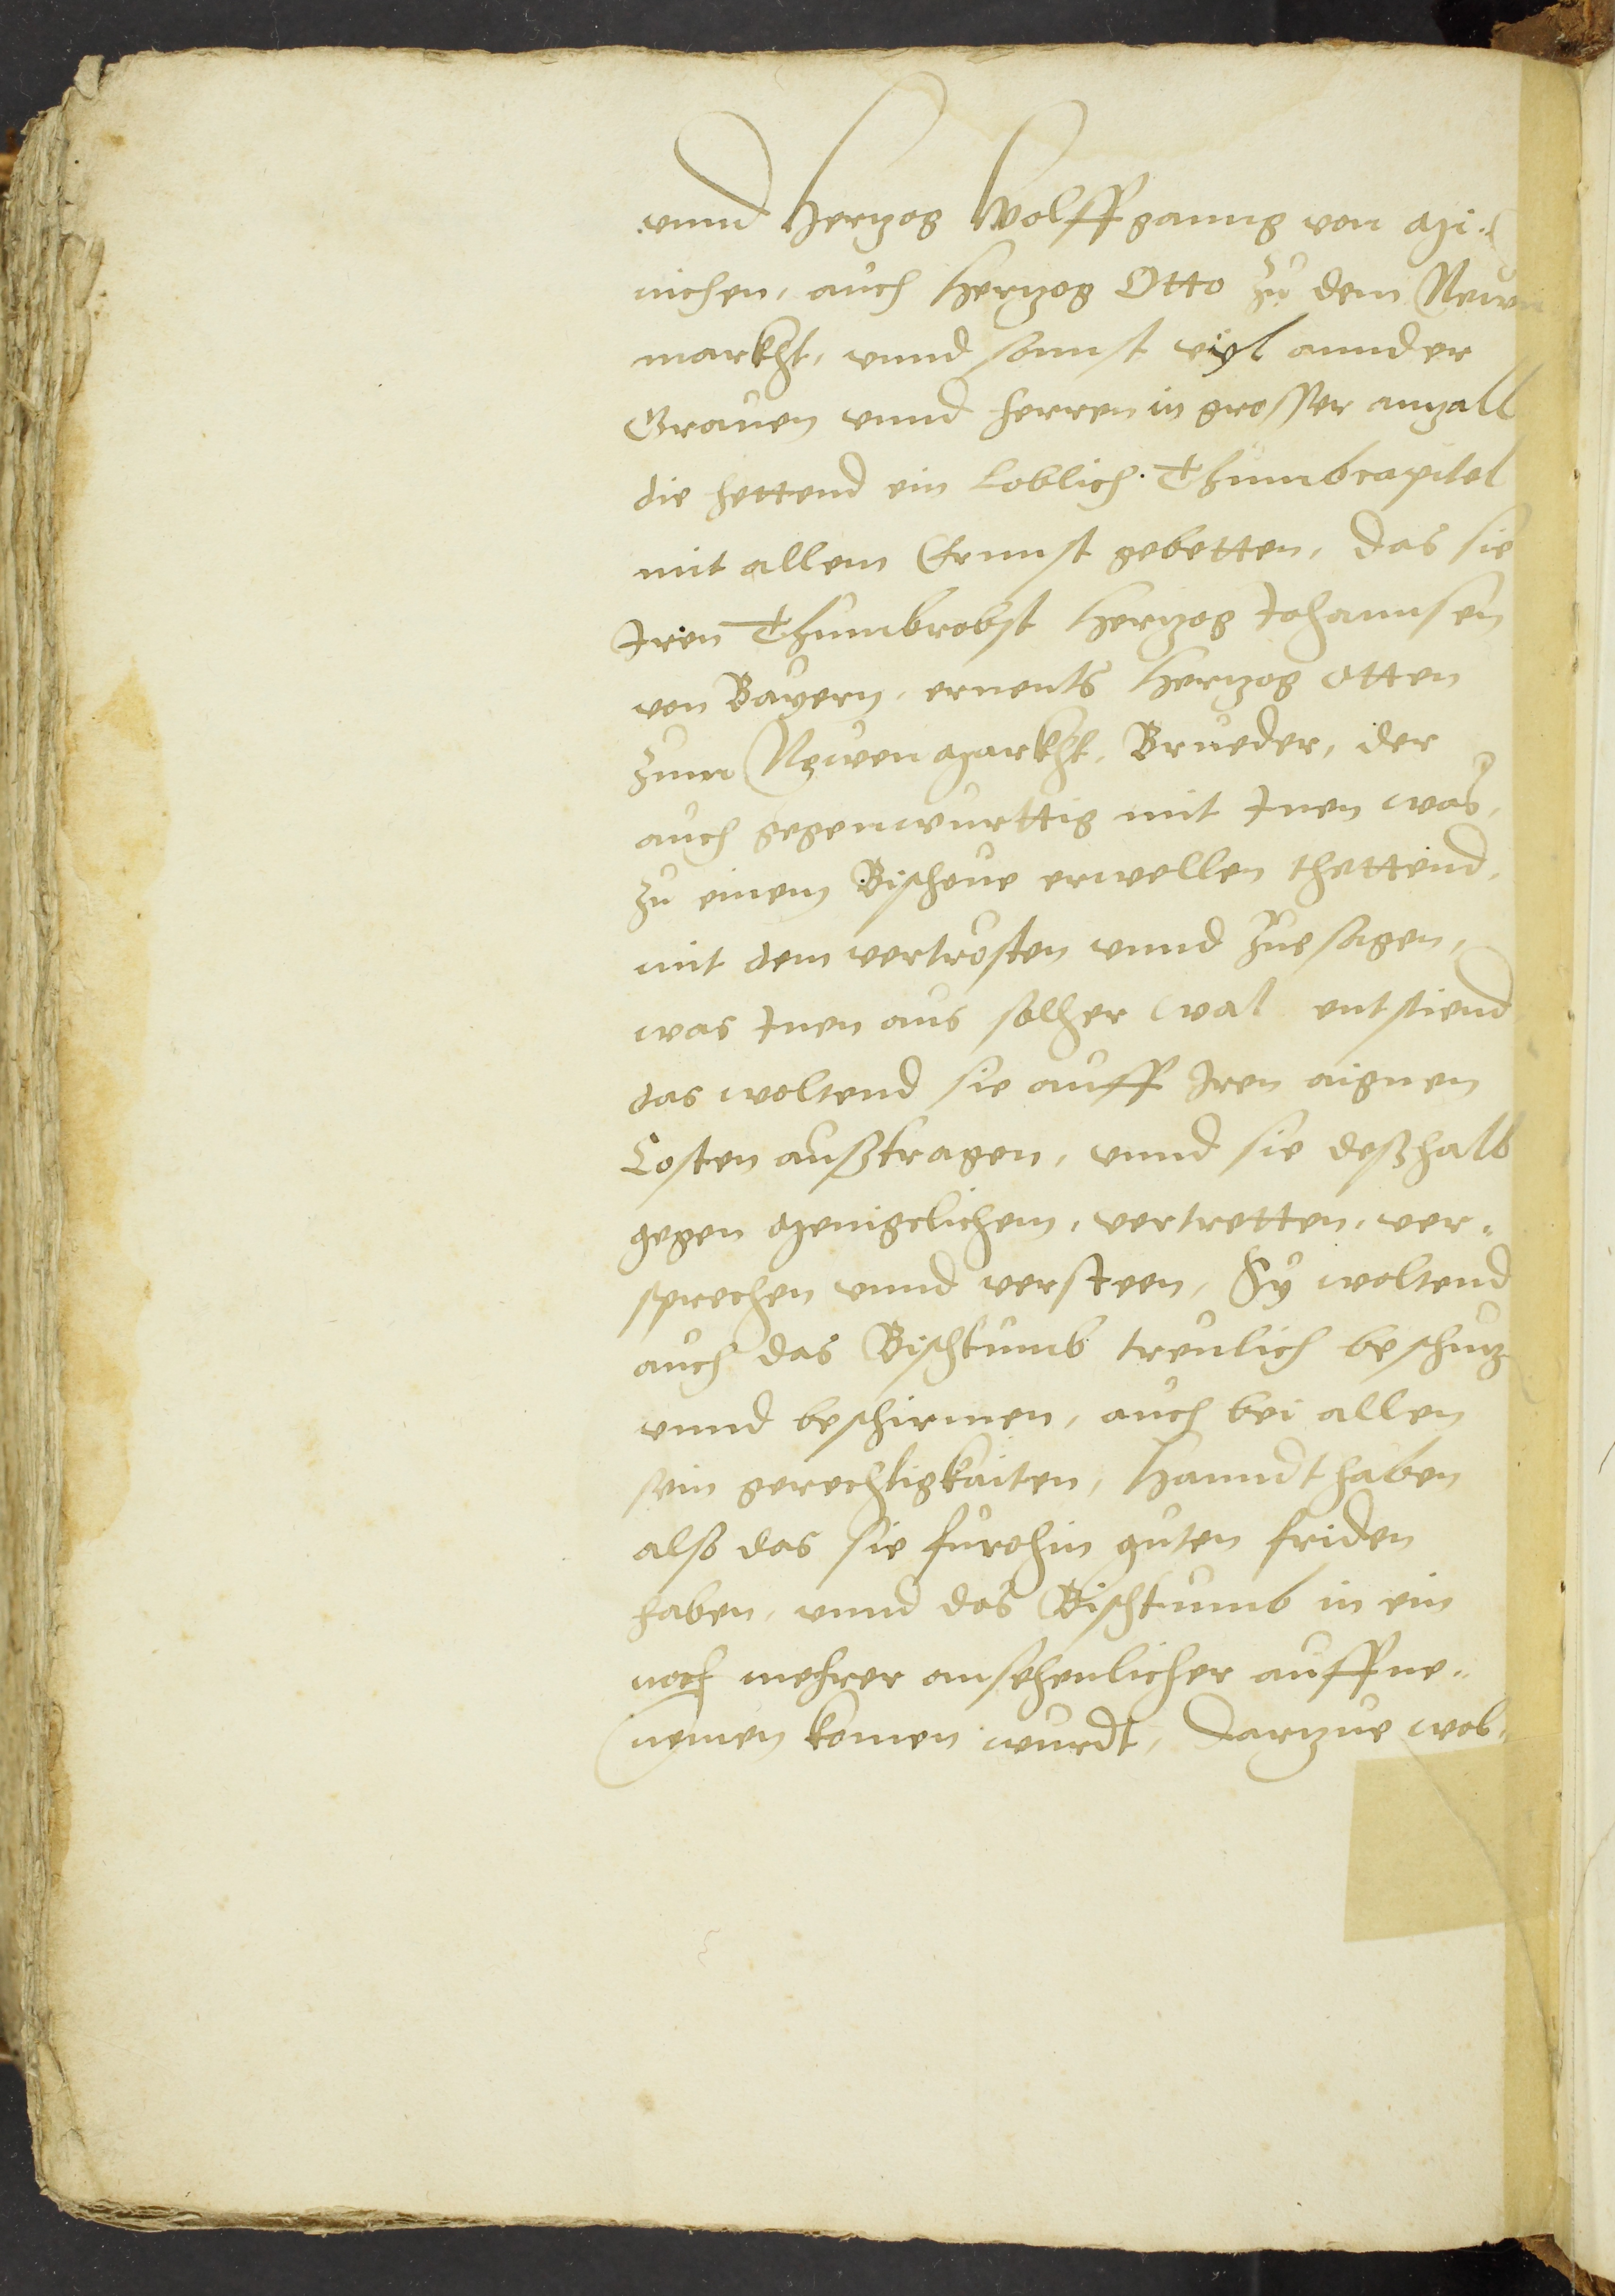 vnnd Hertzog Wolffganng von Mi¬
nichen, auch Hertzog Otto zu dem Newen
markht, vnnd sonnst vyl annder
Grauen vnnd herren in grosser anzall
die hettend ein Loblich Thumbcapitel
mit allem Ernnst gebetten, das sie
Iren Thumbrobst Hertzog Johannsen
von Bayern, ernents Hertzog Otten
zum Newen Markht, Brueder, der
auch gegenwurttig mit Inen was,
zu einem Bischoue erwellen thettend,
mit dem vertrosten vnnd zuesagen,
was Inen aus solher wal entstiend
das woltend sie auff Iren aignen
Costen außtragen, vnnd sie deßhalb
gegen Menigclichem, vertretten, ver¬
sprechen vnnd versteen, Sy woltend
auch das Bischtumb treulich beschutz
vnnd beschirmen, auch bei allen
sein gerechtigkaiten, Hanndthaben
alß das sie furohin guten friden
haben, vnnd das Bischtumb in ein
noch mehrer ansehenlicher auffne¬
nemen komen wurdt, Dartzue wol¬